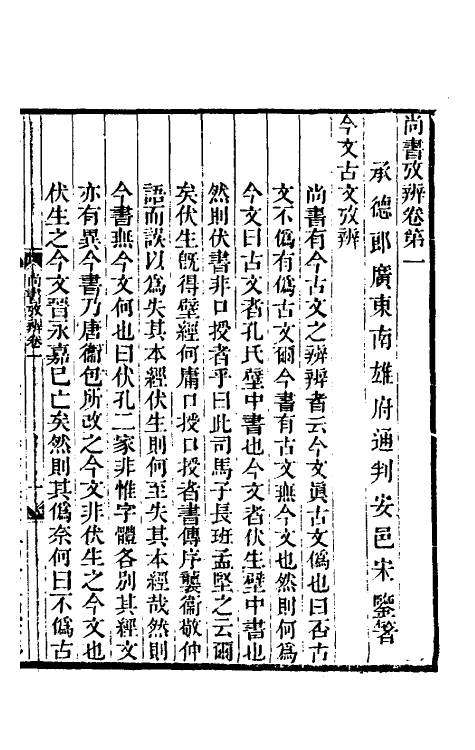 尚書攷辨卷第一
承德郎廣東南雄府通判安邑宋鑒著
今文古文攷辨
尚書有今古文之辨辨者云今文眞古文僞也曰否古
文不僞有僞古文爾今書有古文無今文也然則何爲
今文曰古文者孔氏壁中書也今文者伏生壁中書也
然則伏書非口授者乎曰此司馬子長班孟堅之云爾
矣伏生旣得壁經何庸口授口授者書傳序襲衞敬仲
語而誤以爲失其本經伏生則何至失其本經哉然則
今書無今文何也曰伏孔二家非惟字體各别其經文
亦有異今書乃唐衞包所改之今文非伏生之今文也
伏生之今文晉永嘉巳亡矣然則其僞奈何曰不僞古
尚書攷辨卷一
一